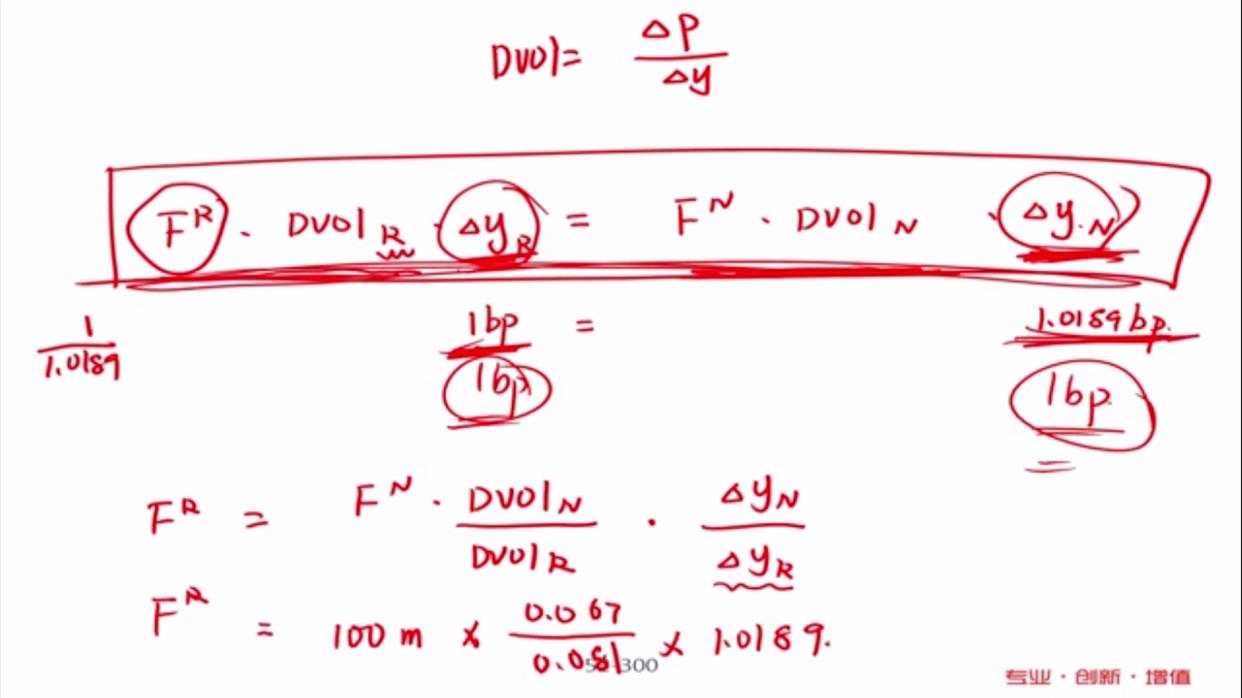 DV01 = ΔP / Δy
F^R · DV01_R · Δy_R = F^N · DV01_N · Δy_N
1 / 1.0189 1bp = 1.0189 bp.
1bp 1bp
F^R = F^N · DV01_N / DV01_R · Δy_N / Δy_R
F^R = 100 m × 0.067 / 0.081 × 1.0189.
-300
专业 · 创新 · 增值